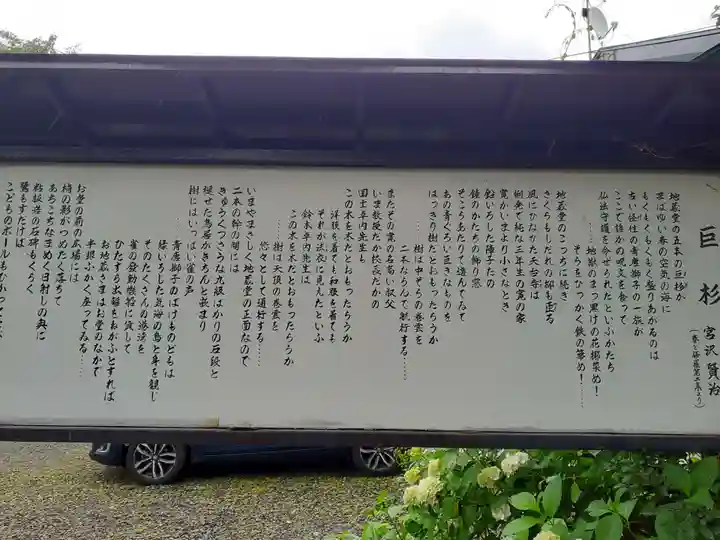 巨杉
宮沢賢治
(春と修羅第二集より)
地蔵堂の五本の巨杉が
まばゆい春の空気の海に
もくもくもくもく盛りあがるのは
古い怪性の青唐獅子の一族が
ここで誰かの呪文を食って
仏法守護を命ぜられたといふかたち
……地獄のまっ黒けの花椰菜め!
そらをひっかく鉄の箒め!……
地蔵堂のこっちに続き
さくらもしだれの柳も匝る
風にひなびた天台寺は
悧発で純な三年生の寛の家
寛がいまより小さなとき
鉛いろした障子だの
鐘のかたちの飾り窓
そこらあたりで遊んでゐて
あの青ぐろい巨きなものを
はっきり樹だとおもったらうか
……樹は中ぞらの巻雲を
二本ならんで航行する……
またその寛の名高い叔父
いま教授だか校長だかの
国士卓内先生も
この木を木だとおもったらうか
洋服を着ても和服を着ても
それが法衣に見えたといふ
鈴木卓内先生は
この木を木だとおもったらうか
……樹は天頂の巻雲を
悠々として通行する……
いまやまさしく地蔵堂の正面なので
二本の幹の間には
きゅうくつさうな九級ばかりの石段と
褪せた鳥居がきちんと嵌まり
樹にはいっぱい雀の声
……青唐獅子のばけものどもは
緑いろした気海の島と身を観じ
そのたくさんの港湾を
雀の発動機船に貸して
ひたすら出離をねがふとすれば
お地蔵さまはお堂のなかで
半眼ふかく座ってゐる……
お堂の前の広場には
梢の影がつめたく落ちて
あちこちなまめく日射しの奥に
粘板岩の石碑もくらく
鷺もすだけば
こどものボールもひかってとぶ